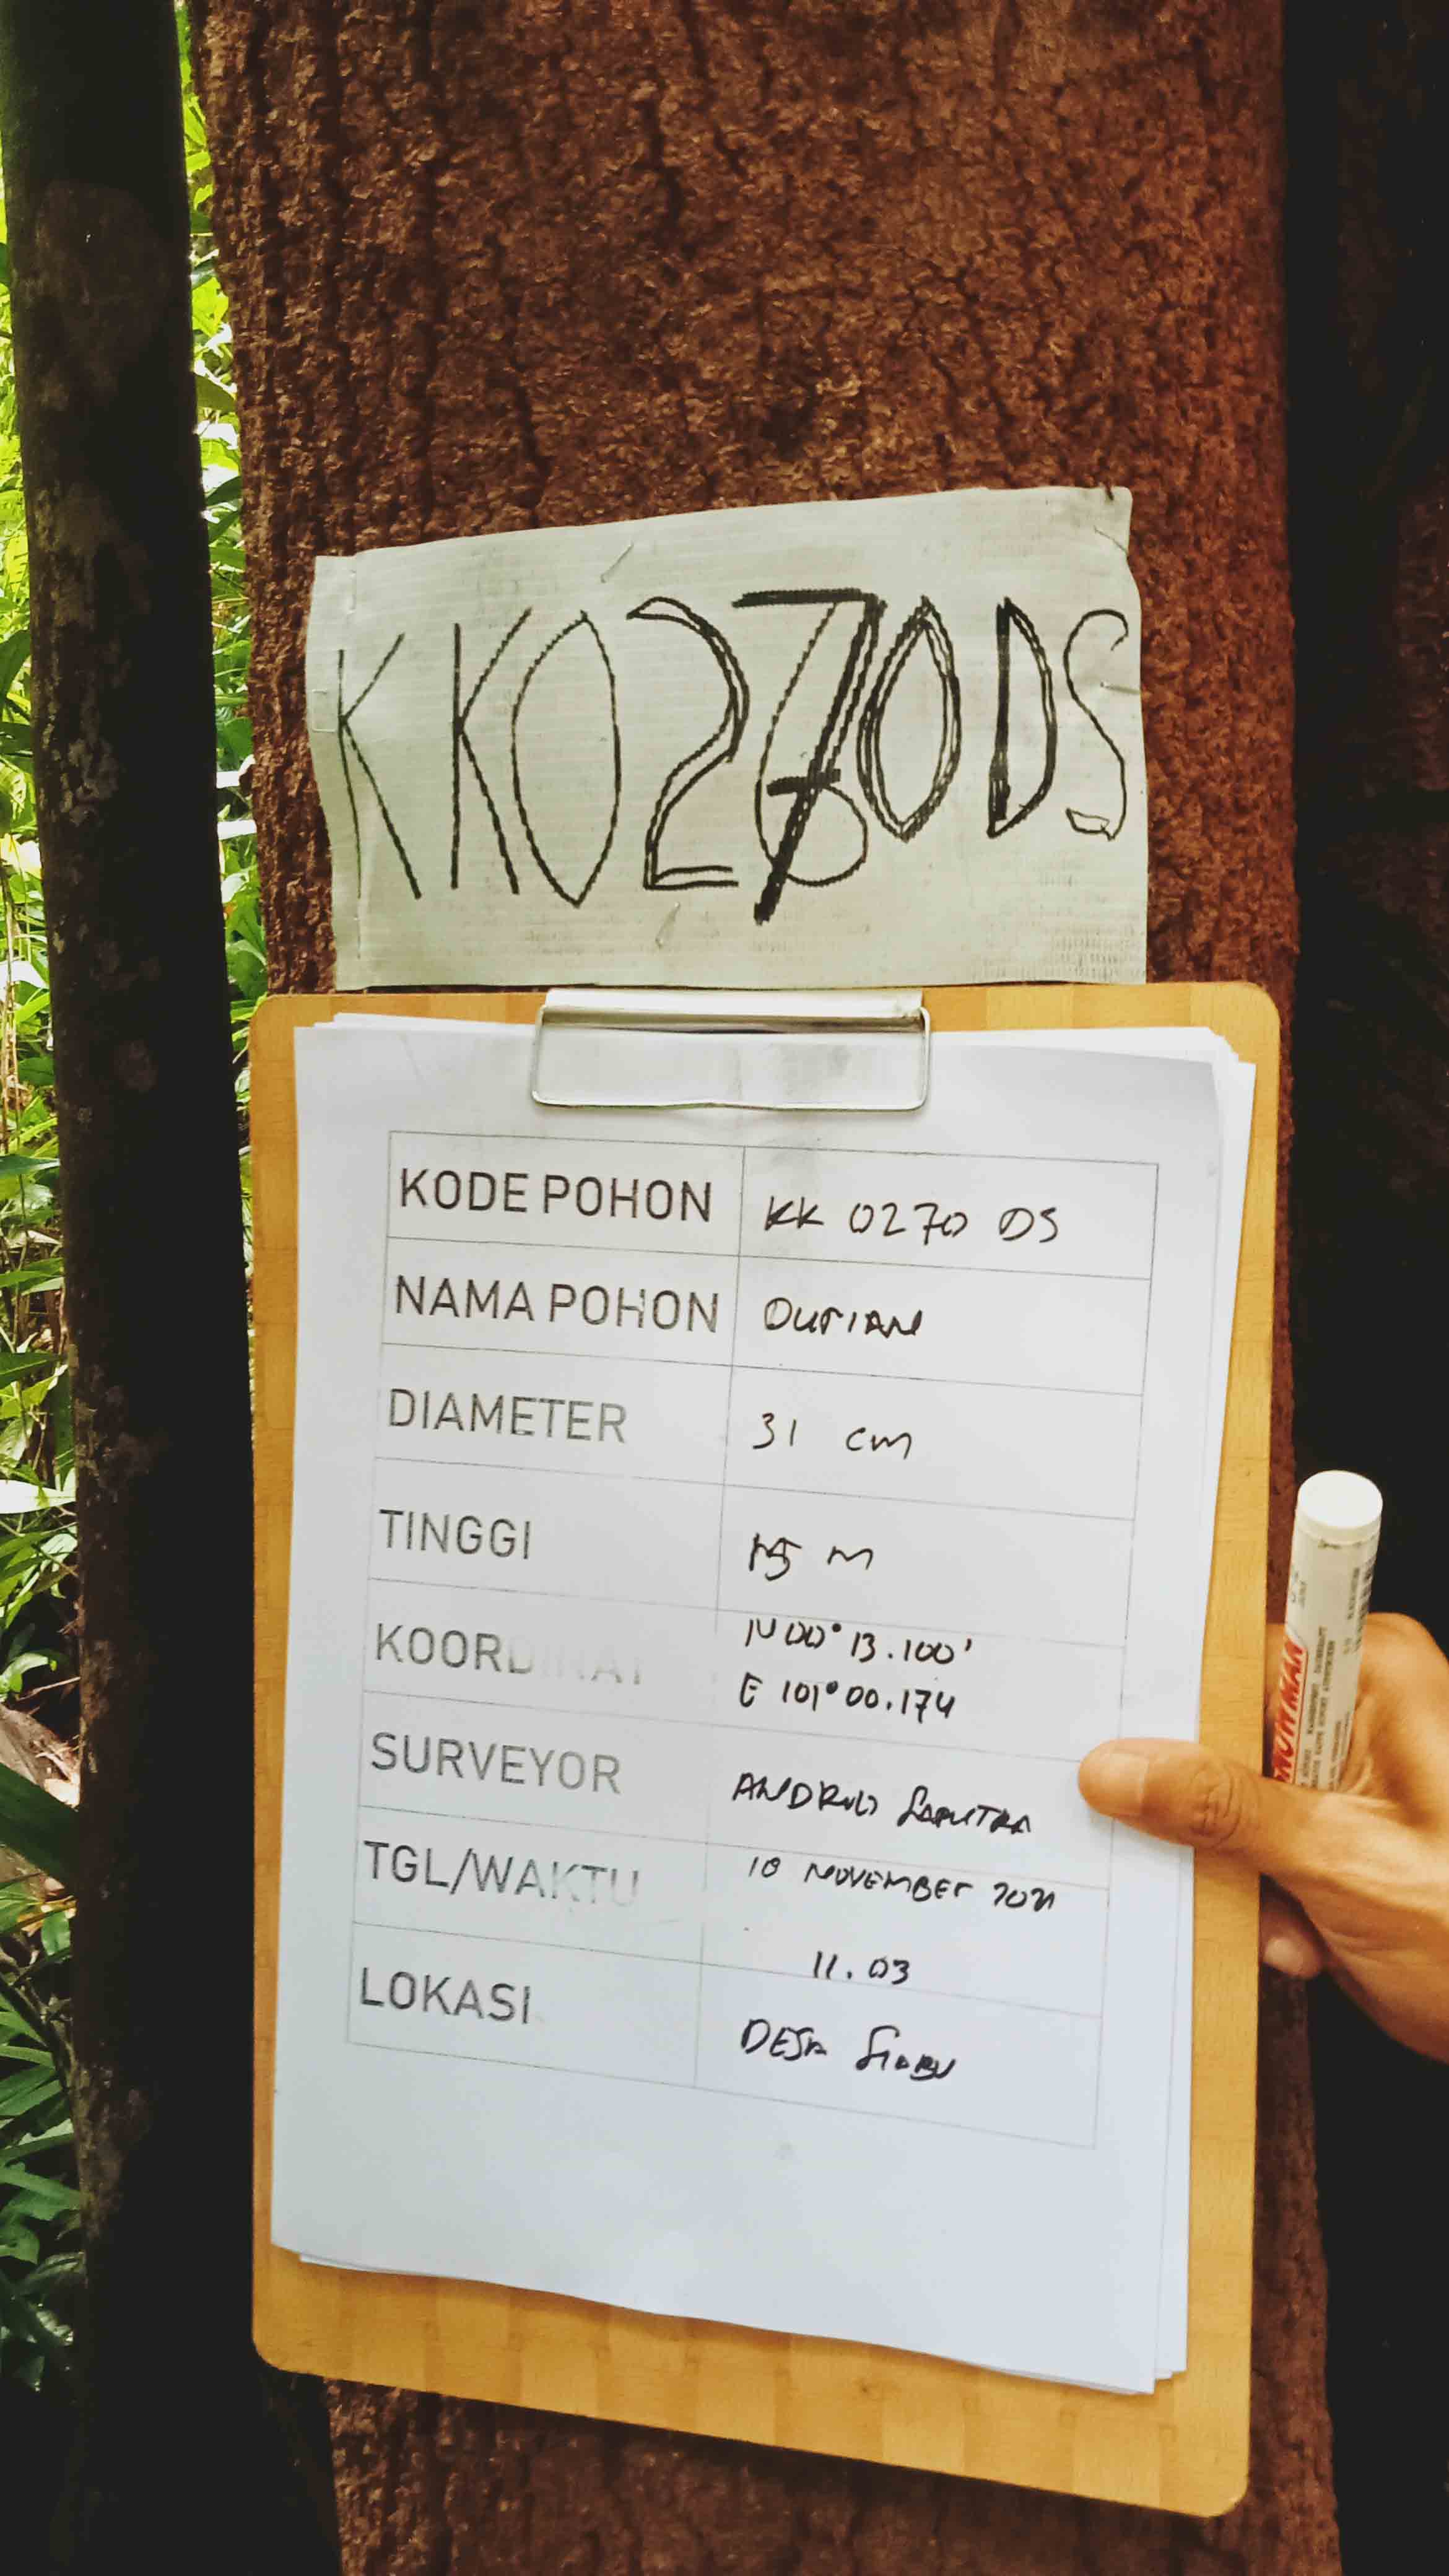 KK0270DS
KODE POHON KK 0270 DS
NAMA POHON DURIAN
DIAMETER 31 cm
TINGGI 15 m
KOORDINAT N 00° 13.100'
E 101° 00.174
SURVEYOR SAPUTRA
TGL/WAKTU 10 NOVEMBER 2021
11.03
LOKASI DESA SIABU
SNOWMAN